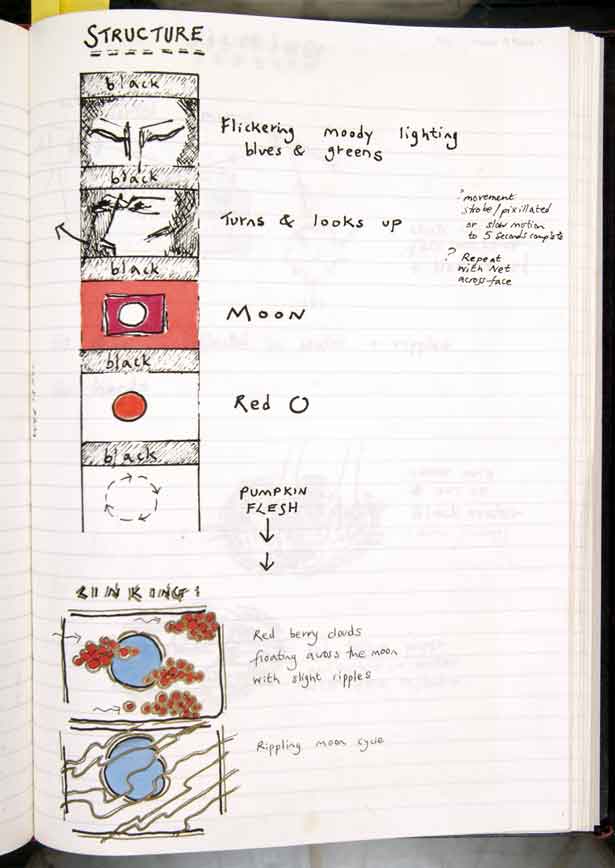 STRUCTURE
black
Flickering moody lighting
blues & greens
black
Turns & looks up
? movement
strobe/pixillated
or slow motion
to 5 seconds complete
? Repeat
with Net
across-face
black
MOON
black
Red O
black
PUMPKIN
FLESH
Red berry clouds
floating across the moon
with slight ripples
Rippling moon cycle